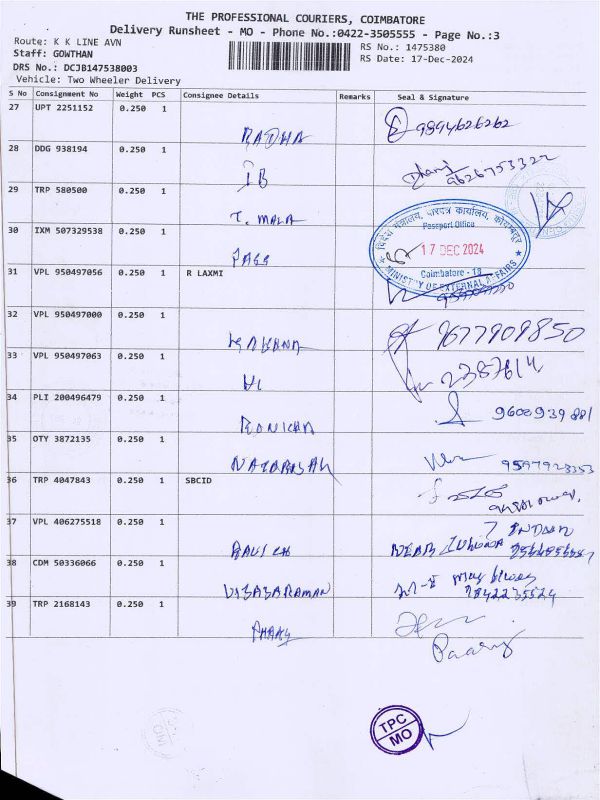 THE PROFESSIONAL COURIERS, COIMBATORE
Delivery Runsheet - MO - Phone No.:0422-3505555 - Page No.:3
Route: K K LINE AVN
RS No.: 1475380
Staff: GOWTHAN
RS Date: 17-Dec-2024
DRS No.: DCJB147538003
Vehicle: Two Wheeler Delivery
S No Consignment No Weight PCS Consignee Details Remarks Seal & Signature
27 UPT 2251152 0.250 1 RADHA 9894626262
28 DDG 938194 0.250 1 IB 9626753322
29 TRP 580500 0.250 1 T. MALA
30 IXM 507329538 0.250 1 PASS
विदेश मंत्रालय, पारपत्र कार्यालय, कोयम्बत्तूर
Passport Office
17 DEC 2024
Coimbatore - 18
MINISTRY OF EXTERNAL AFFAIRS
31 VPL 950497056 0.250 1 R LAXMI
32 VPL 950497000 0.250 1 9677909850
33 VPL 950497063 0.250 1 2387614
34 PLI 200496479 0.250 1 9608939881
35 OTY 3872135 0.250 1 NATARAJAN 9597923353
36 TRP 4047843 0.250 1 SBCID
37 VPL 406275518 0.250 1 NEAR
38 CDM 50336066 0.250 1 VIJAYARAMAN 9842235524
39 TRP 2168143 0.250 1
TPC
MO